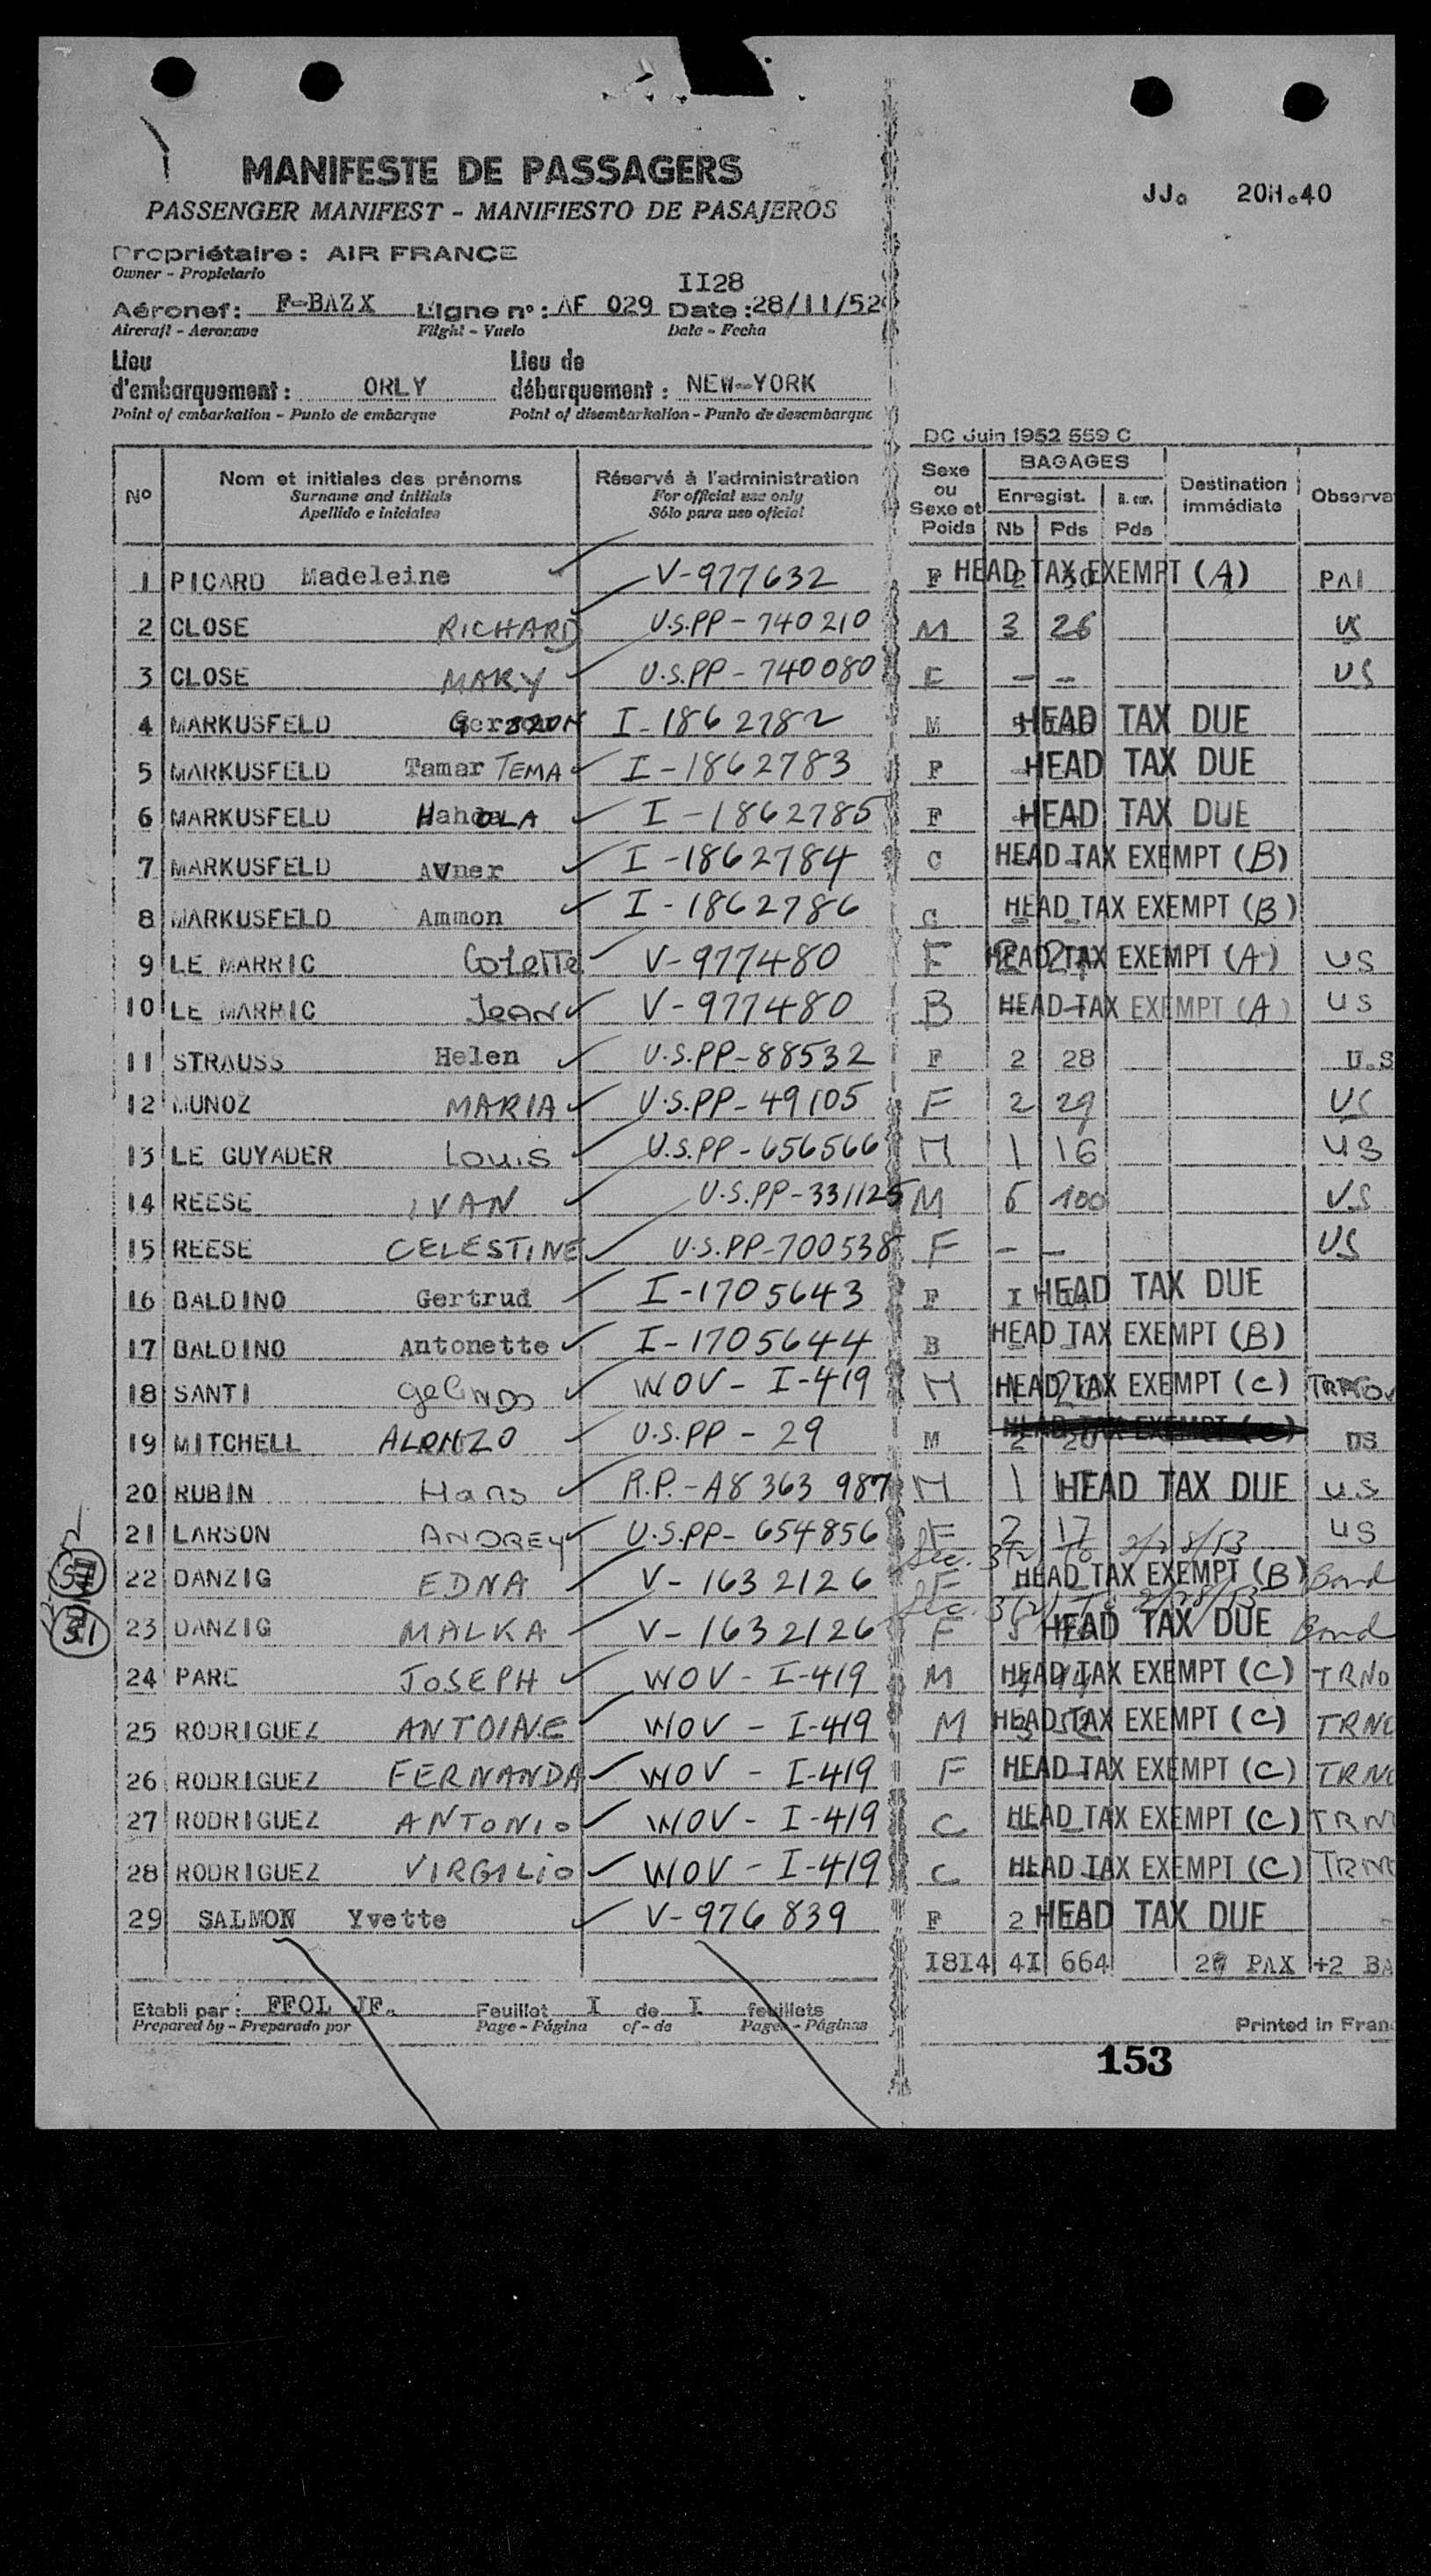 MANIFESTE DE PASSAGERS
PASSENGER MANIFEST - MANIFIESTO DE PASAJEROS
JJ. 20H.40
Propriétaire : AIR FRANCE
Owner - Propietario
II28
Aéronef : F-BAZX Ligne n° : AF 029 Date : 28/11/52
Aircraft - Aeronave Flight - Vuelo Date - Fecha
Lieu d'embarquement : ORLY Lieu de débarquement : NEW-YORK
Point of embarkation - Punto de embarque Point of disembarkation - Punto de desembarque
DC Juin 1952 559 C
N° Nom et initiales des prénoms Réservé à l'administration Sexe ou Sexe et Poids BAGAGES Destination immédiate Observa
Surname and initials For official use only Enregist.
Apellido e iniciales Sólo para uso oficial Nb Pds Pds
1 PICARD Madeleine V-977632 F 2 HEAD TAX EXEMPT (A) PAI
2 CLOSE RICHARD U.S.PP - 740210 M 3 26 US
3 CLOSE MARY U.S.PP - 740080 F - - US
4 MARKUSFELD I-1862782 M HEAD TAX DUE
5 MARKUSFELD Tamar TEMA I-1862783 F HEAD TAX DUE
6 MARKUSFELD I-1862785 F HEAD TAX DUE
7 MARKUSFELD Avner I-1862784 C HEAD TAX EXEMPT (B)
8 MARKUSFELD Ammon I-1862786 C HEAD TAX EXEMPT (B)
9 LE MARRIC Colette V-977480 F HEAD TAX EXEMPT (A) US
10 LE MARRIC JEAN V-977480 B HEAD TAX EXEMPT (A) US
11 STRAUSS Helen U.S.PP-88532 F 2 28 U.S
12 MUNOZ MARIA U.S.PP-49105 F 2 29 US
13 LE GUYADER Louis U.S.PP-656566 M 1 16 US
14 REESE IVAN U.S.PP-331125 M 6 100 US
15 REESE CELESTINE U.S.PP-700538 F - - US
16 BALDINO Gertrud I-1705643 F I HEAD TAX DUE
17 BALDINO Antonette I-1705644 B HEAD TAX EXEMPT (B)
18 SANTI WOV - I-419 M HEAD TAX EXEMPT (C)
19 MITCHELL ALONZO U.S.PP - 29 M 2 20 US
20 RUBIN Hans R.P.-A8 363 987 M 1 HEAD TAX DUE U.S
21 LARSON AUDREY U.S.PP-654856 F 2 17 US
Sec. 3(2) To 2/28/53
22 DANZIG EDNA V-1632126 F HEAD TAX EXEMPT (B) Bond
Sec. 3(2) To 2/28/53
23 DANZIG MALKA V-1632126 F 5 HEAD TAX DUE Bond
24 PARC JOSEPH WOV - I-419 M HEAD TAX EXEMPT (C) TRNO
25 RODRIGUEZ ANTOINE WOV - I-419 M HEAD TAX EXEMPT (C) TRNO
26 RODRIGUEZ FERNANDA WOV - I-419 F HEAD TAX EXEMPT (C) TRNO
27 RODRIGUEZ ANTONIO WOV - I-419 C HEAD TAX EXEMPT (C) TRN
28 RODRIGUEZ VIRGILIO WOV - I-419 C HEAD TAX EXEMPT (C) TRNO
29 SALMON Yvette V-976839 F 2 HEAD TAX DUE
I8I4 4I 664 PAX +2 BA
Etabli par : FFOL JF. Feuillet I de I feuillets
Prepared by - Preparado por Page - Página of - de Pages - Páginas
Printed in Fran
153